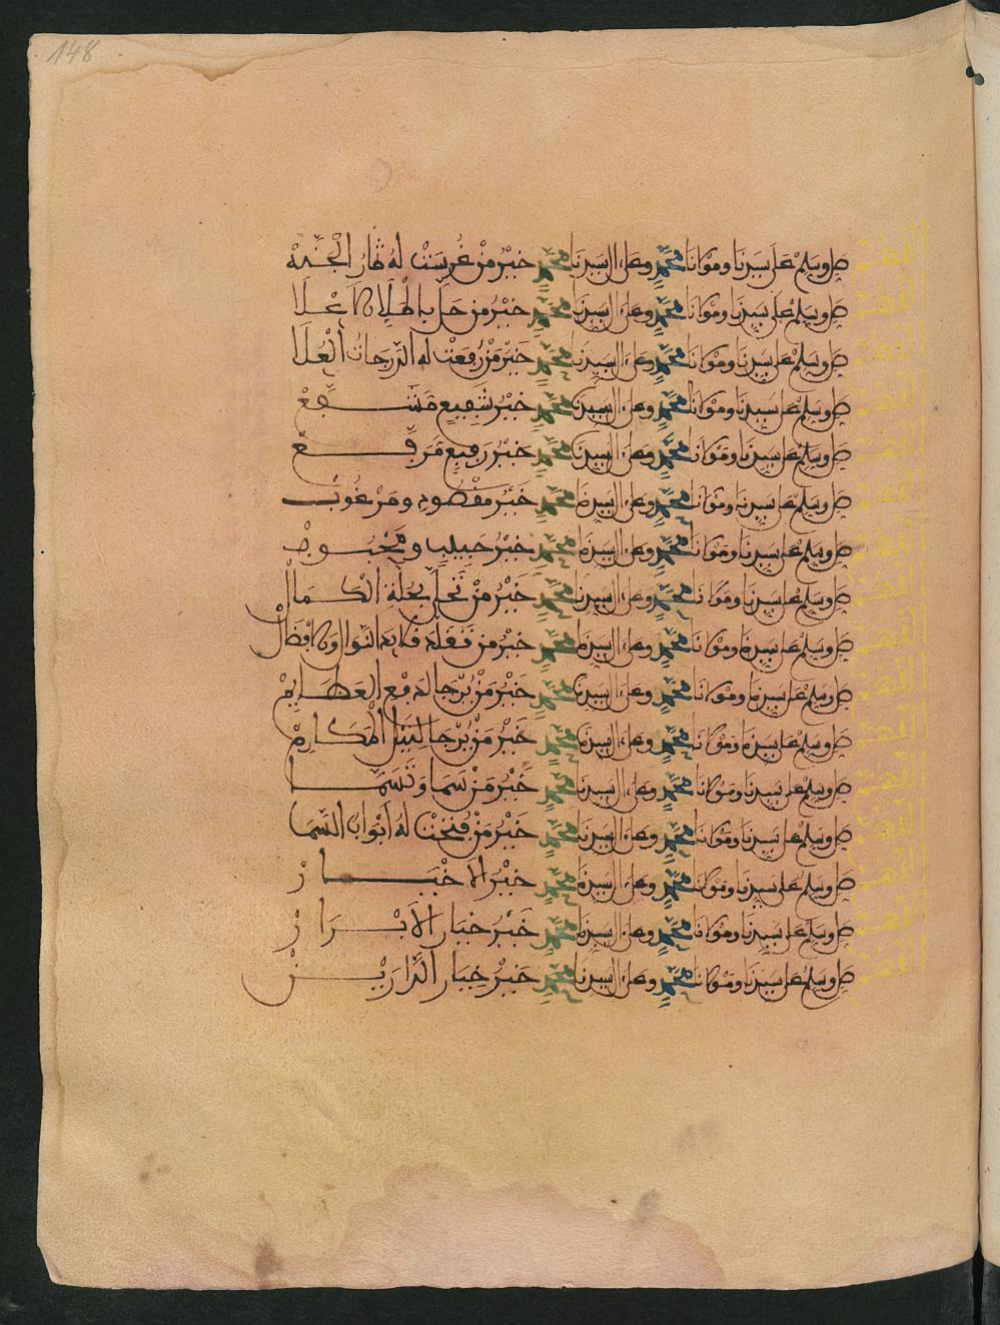 148
اللهم صل وسلم على سيدنا ومولانا محمد وعلى ءال سيدنا محمد خير من غرست له ثمار الجنة
اللهم صل وسلم على سيدنا ومولانا محمد وعلى ءال سيدنا محمد خير من حل بالملإ الأعلا
اللهم صل وسلم على سيدنا ومولانا محمد وعلى ءال سيدنا محمد خير من رفعت له الدرجات العلا
اللهم صل وسلم على سيدنا ومولانا محمد وعلى ءال سيدنا محمد خير شفيع مشفع
اللهم صل وسلم على سيدنا ومولانا محمد وعلى ءال سيدنا محمد خير رفيع مرفع
اللهم صل وسلم على سيدنا ومولانا محمد وعلى ءال سيدنا محمد خير مقصود ومرغوب
اللهم صل وسلم على سيدنا ومولانا محمد وعلى ءال سيدنا محمد خير حبيب ومحبوب
اللهم صل وسلم على سيدنا ومولانا محمد وعلى ءال سيدنا محمد خير من تحلى بحلة الكمال
اللهم صل وسلم على سيدنا ومولانا محمد وعلى ءال سيدنا محمد خير من النوال والأفضال
اللهم صل وسلم على سيدنا ومولانا محمد وعلى ءال سيدنا محمد خير من يرجا لدفع العظايم
اللهم صل وسلم على سيدنا ومولانا محمد وعلى ءال سيدنا محمد خير من يرجا لنيل المكارم
اللهم صل وسلم على سيدنا ومولانا محمد وعلى ءال سيدنا محمد خير من سما وتسما
اللهم صل وسلم على سيدنا ومولانا محمد وعلى ءال سيدنا محمد خير من فتحت له أبواب السما
اللهم صل وسلم على سيدنا ومولانا محمد وعلى ءال سيدنا محمد خير الأخيار
اللهم صل وسلم على سيدنا ومولانا محمد وعلى ءال سيدنا محمد خير خيار الأبرار
اللهم صل وسلم على سيدنا ومولانا محمد وعلى ءال سيدنا محمد خير خيار الدارين